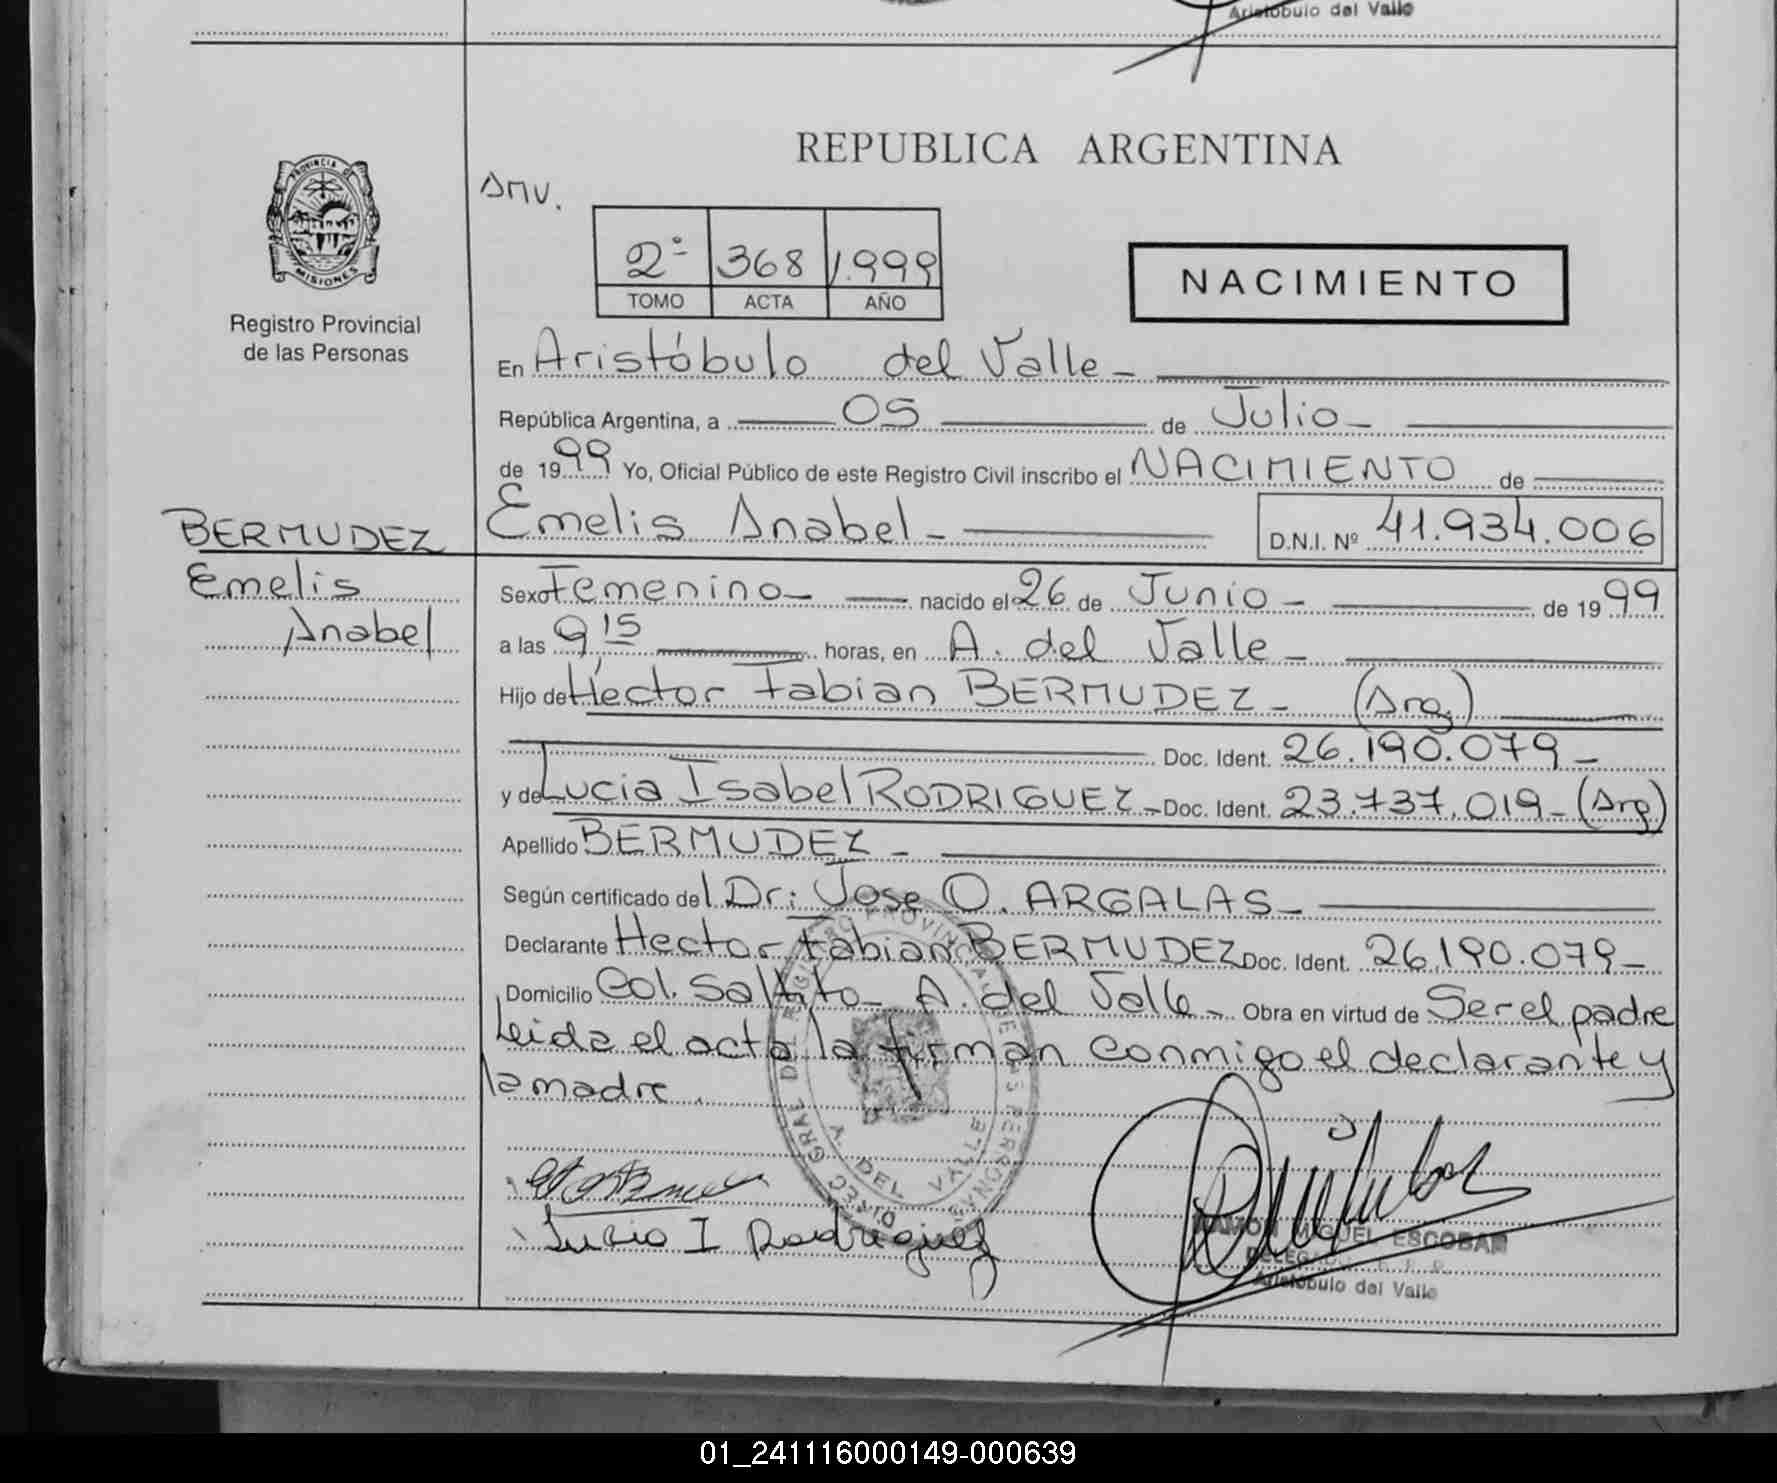 Aristobulo del Valle
REPUBLICA ARGENTINA
PROVINCIA DE
MISIONES
Registro Provincial
de las Personas
2º 368 1.999
TOMO ACTA AÑO
NACIMIENTO
En Aristóbulo del Valle -
República Argentina, a 05 de Julio -
de 1999 Yo, Oficial Público de este Registro Civil inscribo el NACIMIENTO de
Emelis Anabel - D.N.I. Nº 41.934.006
BERMUDEZ
Emelis
Anabel
Sexo Femenino - nacido el 26 de Junio - de 1999
a las 9,15 horas, en A. del Valle -
Hijo de Héctor Fabian BERMUDEZ - (Arg.)
Doc. Ident. 26.190.079 -
y de Lucia Isabel RODRIGUEZ - Doc. Ident. 23.737.019 - (Arg)
Apellido BERMUDEZ -
Según certificado del Dr: Jose O. ARGALAS -
Declarante Hector Fabian BERMUDEZ Doc. Ident. 26.190.079 -
Domicilio Col. Saltito - A. del Valle - Obra en virtud de Ser el padre
Leida el acta la firman conmigo el declarante y
la madre.
Lucia I Rodriguez
RAMON MIGUEL ESCOBAR
Aristobulo del Valle
01_241116000149-000639